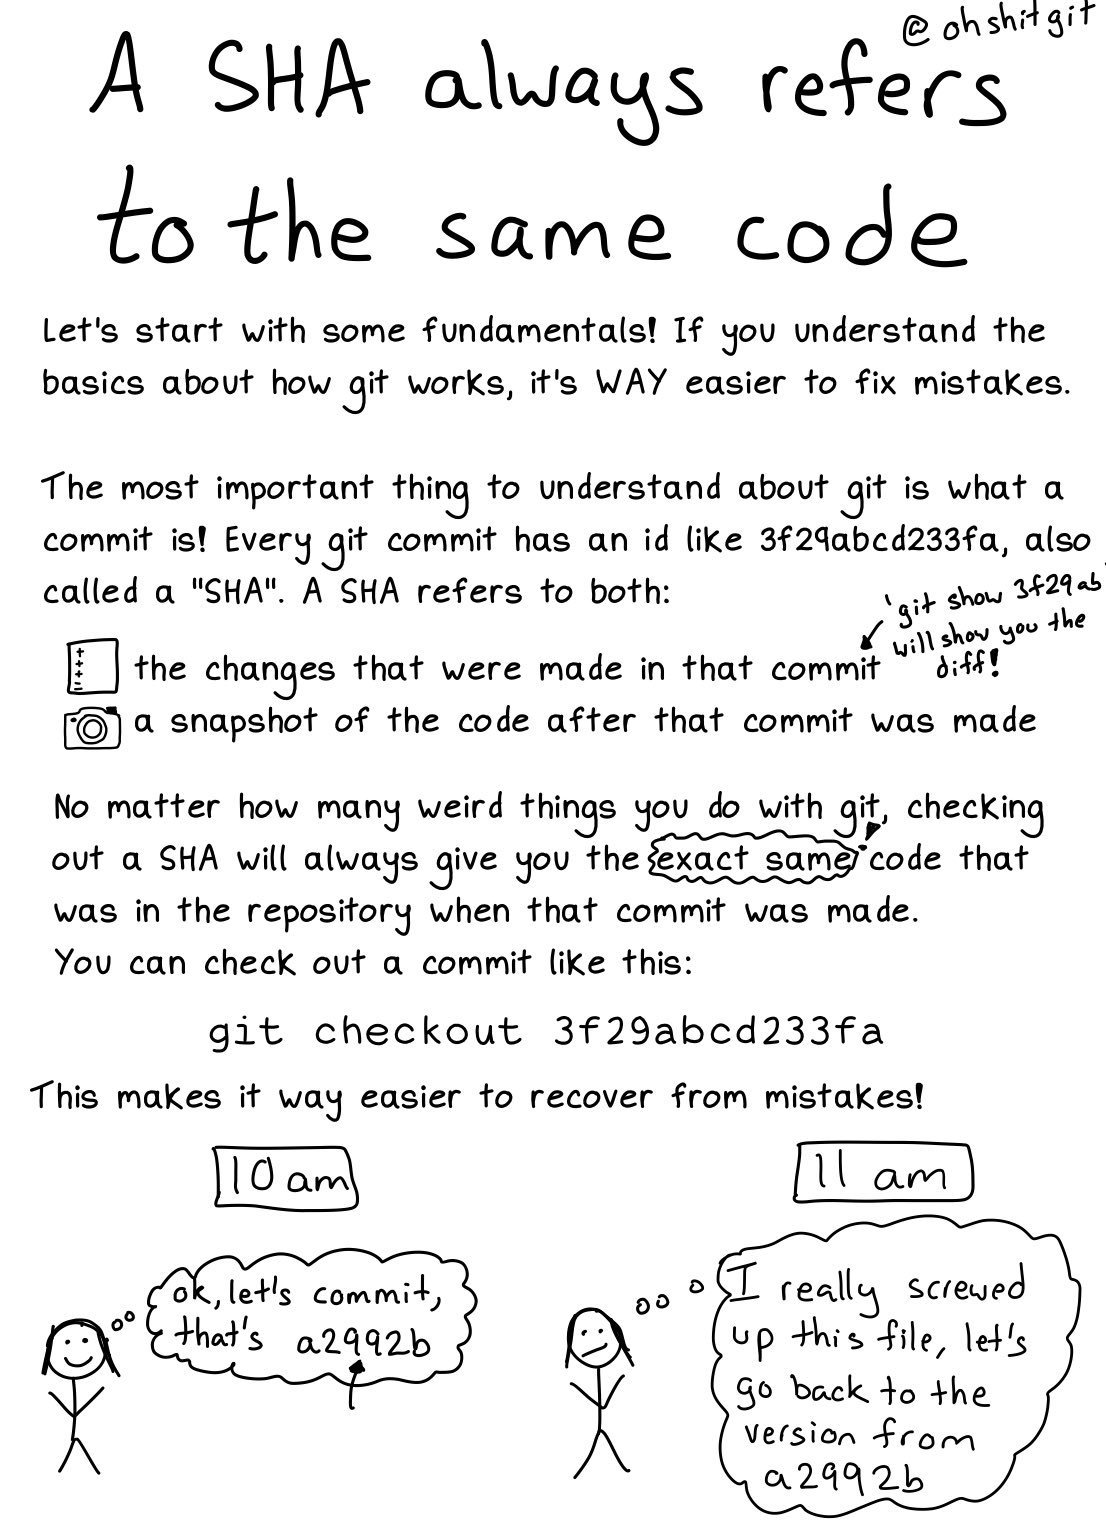 @ohshitgit
A SHA always refers
to the same code
Let's start with some fundamentals! If you understand the
basics about how git works, it's WAY easier to fix mistakes.
The most important thing to understand about git is what a
commit is! Every git commit has an id like 3f29abcd233fa, also
called a "SHA". A SHA refers to both:
'git show 3f29ab'
will show you the
diff!
the changes that were made in that commit
a snapshot of the code after that commit was made
No matter how many weird things you do with git, checking
out a SHA will always give you the exact same code that
was in the repository when that commit was made.
You can check out a commit like this:
git checkout 3f29abcd233fa
This makes it way easier to recover from mistakes!
10 am
ok, let's commit,
that's a2992b
11 am
I really screwed
up this file, let's
go back to the
version from
a2992b